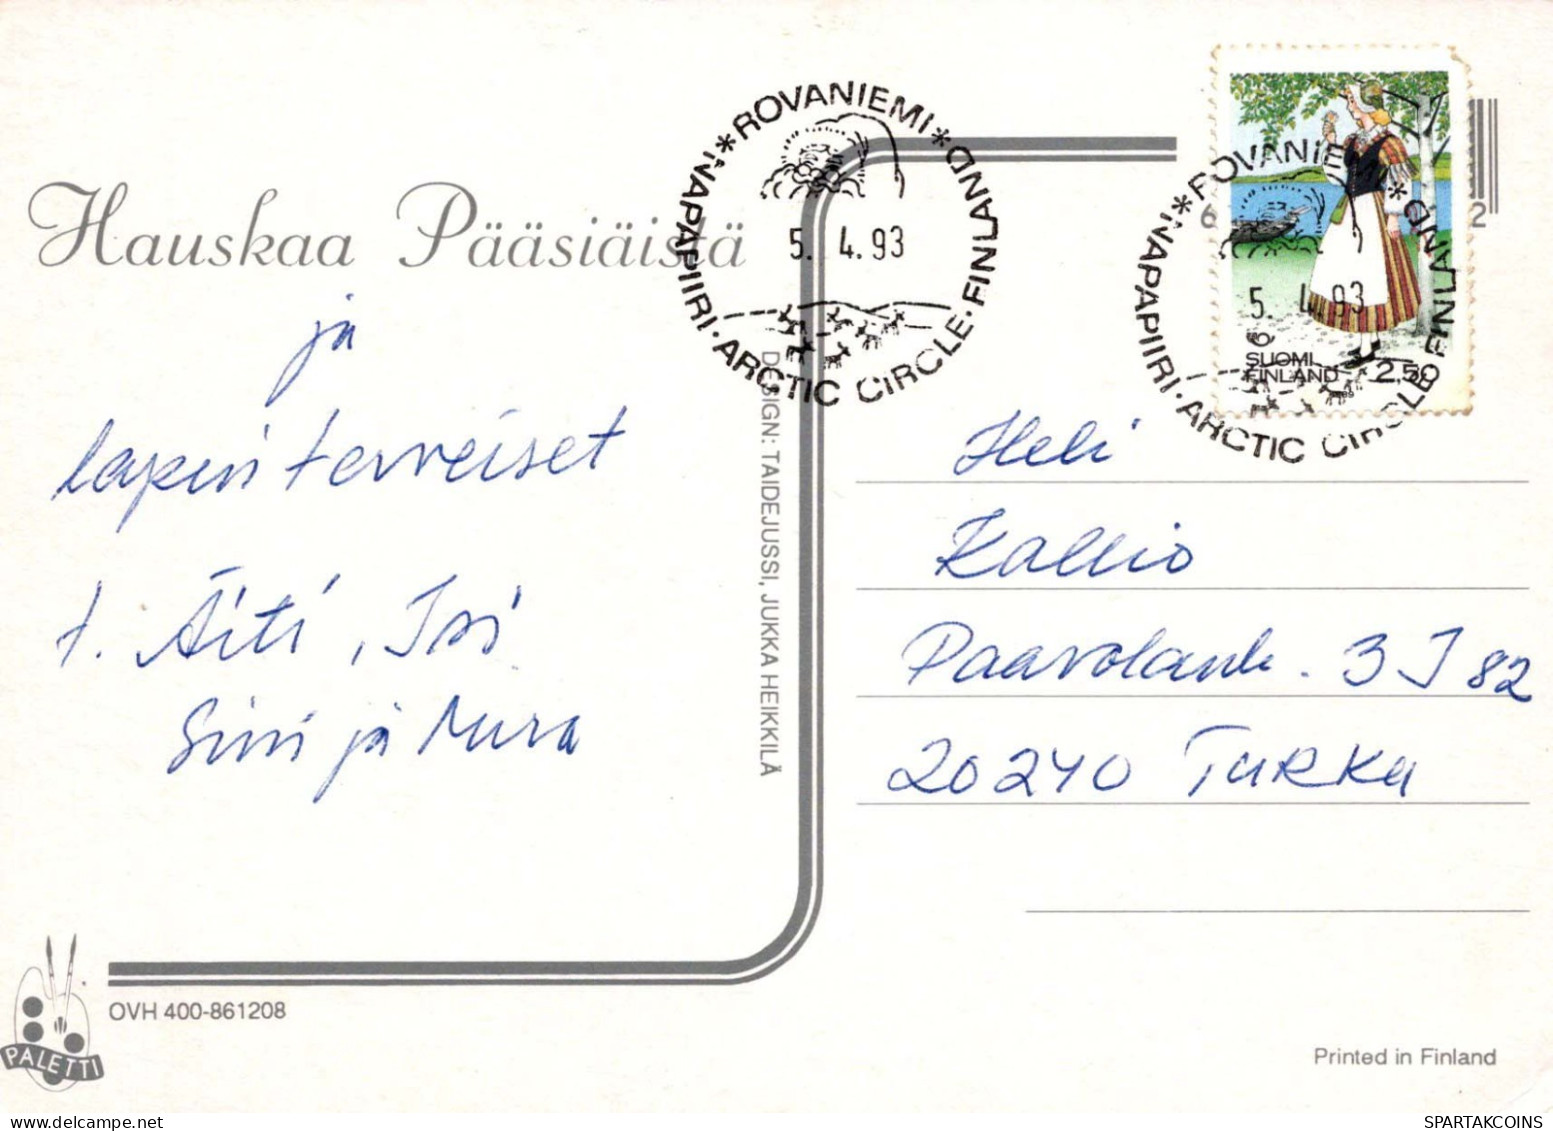 Hauskaa Pääsiäistä
ja
lapin terveiset
t. Äiti, Isi
Sini ja Mura
*ROVANIEMI*
NAPAPIIRI · ARCTIC CIRCLE · FINLAND
5. 4. 93
*ROVANIEMI*
NAPAPIIRI · ARCTIC CIRCLE FINLAND
5. 4. 93
SUOMI
FINLAND 2,50
6
2
DESIGN: TAIDEJUSSI, JUKKA HEIKKILÄ
Heli
Kallio
Paavolank. 3 J 82
20240 TURKU
PALETTI
OVH 400-861208
Printed in Finland
SPARTAKCOINS